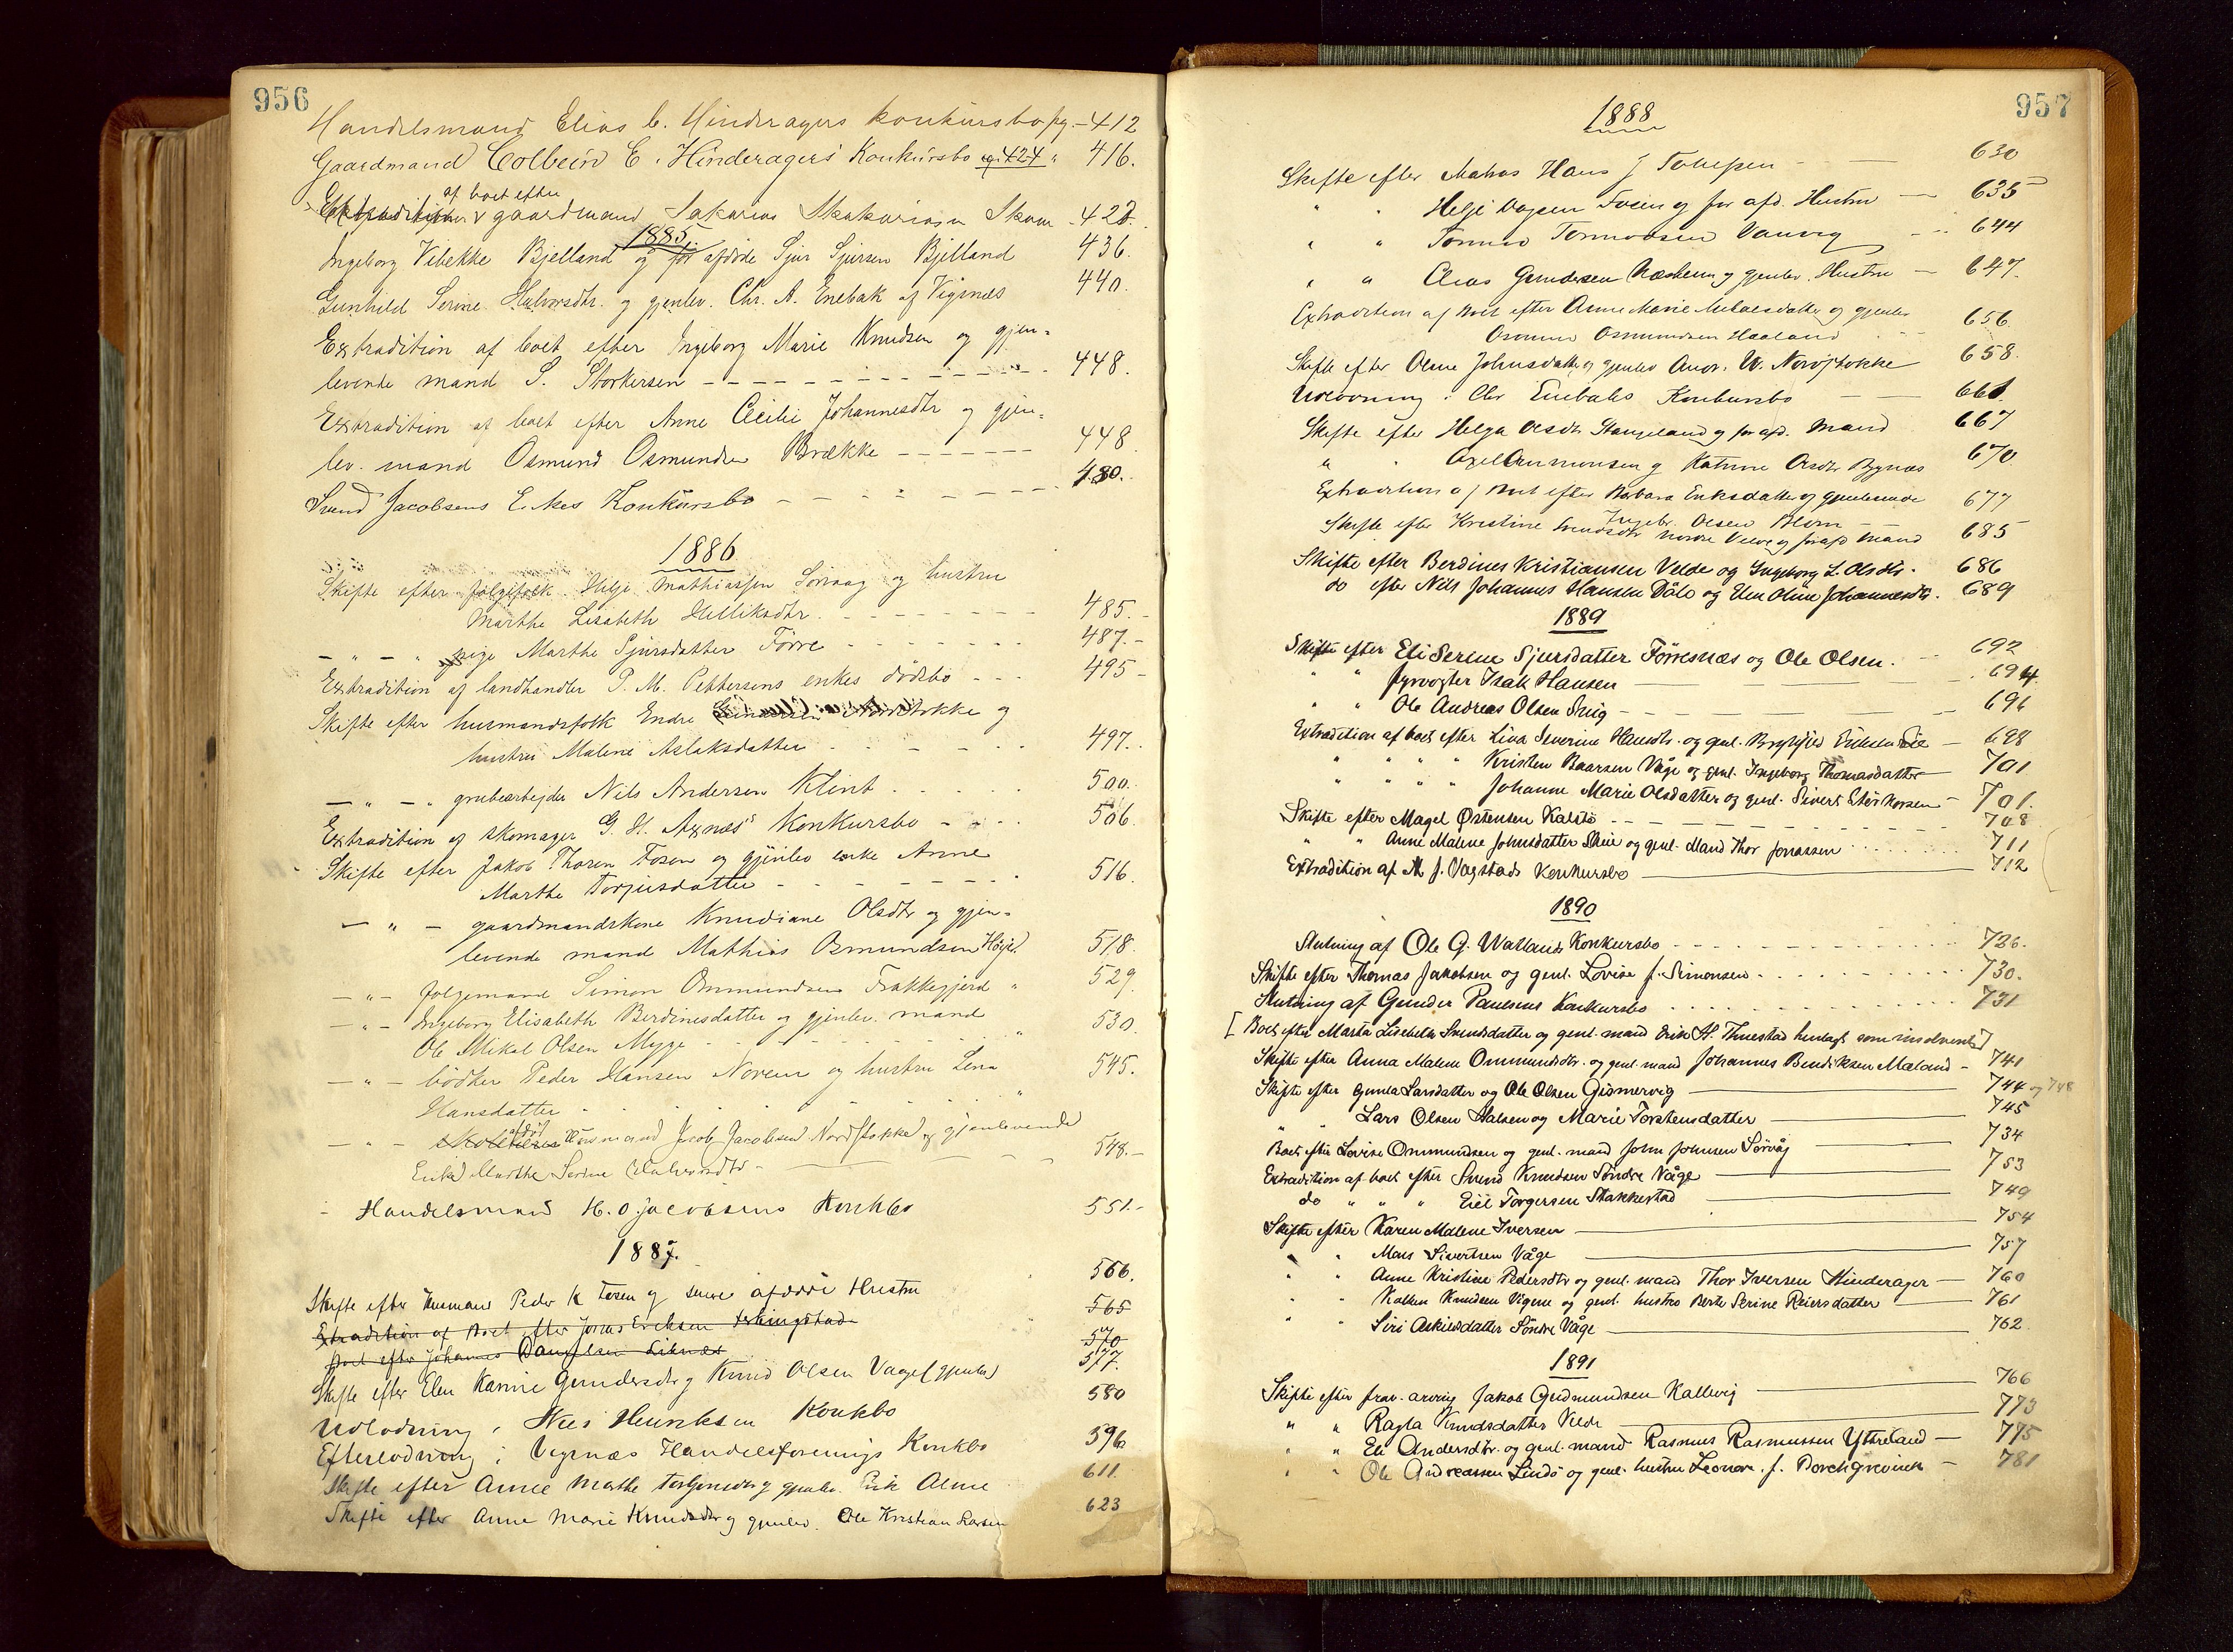 956
Handelsmand Elias C. Hinderagers konkursbo pg. - 412
Gaardmand Colbein E. Hinderagers Konkursbo og 424 " 416.
af boet efter
Extradition gaardmand Sakarias Skakariasen Skom - 427.
1885
Ingeborg Vibekke Bjelland og før afdøde Sjur Sjursen Bjelland 436.
Gunhild Serine Halvorsdtr. og gjenlev. Chr. A. Enebak af Vigsnes 440.
Extradition af boet efter Ingeborg Marie Knudsen og gjen-
levende mand S. Storkersen - - - 448.
Extradition af boet efter Anne Cecilie Johannesdtr og gjen-
lev. mand Osmund Osmundsen Brække - - - 448
Svend Jacobsens Enkes Konkursbo - - - 480.
1886
Skifte efter følgefolk Helje Mathiassen Sørvaag og hustru
Marthe Lisabeth Helliksdtr. - - - 485.-
- " - " pige Marthe Sjursdatter Førre - - - 487.-
Extradition af landhandler P. M. Pettersens enkes dødsbo - - - 495-
Skifte efter husmandsfolk Endre Nordstokke og
hustru Malene Aslaksdatter - - - 497.
- " - " grubearbejder Nils Andersen Klint - - - 500.
Extradition af skomager G. H. Axnæs' konkursbo - - - 506.
Skifte efter Jakob Thoren Fosen og gjenlev enke Anne
Marthe Torjusdatter - - - 516.
- " - gaardmandskone Knudiane Olsdtr og gjen-
levende mand Mathias Osmundsen Høje 518.
- " - følgemand Simon Ommundsen Frakkegjerd " 529.
- " - Ingeborg Elisabeth Berdinesdatter og gjenlev. mand
Ole Mikal Olsen Mygge - - - 530.
- " - bødker Peder Hansen Noreim og hustru Lena 545.
Hansdatter - - -
- " - Husmand Jacob Jacobsen Nordstokke og gjenlevende
Enke Marthe Serine Halvorsdtr - 548.-
- Handelsmand H. O. Jacobsens Konkbo 551.-
1887.
Skifte efter Husmand Peder K Fosen og senere afdøde Hustru 566.
Extradition af Boet efter Jonas Eriksen 565
Boet efter Johannes Danielsen Liknæs 570
Skifte efter Elen Karine Gundersdtr og Knud Olsen Vaage (gjenlev) 577.
Udlodning i Nils Henriksen Konkbo 580
Efterlodning i Vigsnæs Handelsforenings Konkbo 596
Skifte efter Anne Marthe Torgersdtr og gjenlev. Erik Alme 611.
Skifte efter Anne Marie Knudsdtr og gjenlev. Ole Kristian Larsen 623
957
1888
Skifte efter Matros Hans J Tollefsen - 630
" " Helje Dagsen Fosen og før afd. Hustru - 635
" " Tormod Tormodsen Vanvig - 644
" " Elias Gundersen Næsheim og gjenlev. Hustru - 647.
Extradition af Boet efter Anne Marie Mikalsdatter og gjenlev
Osmund Osmundsen Haaland 656.
Skifte efter Oline Johnsdatter og gjenlev Andr. W. Nordstokke 658.
Udlodning i Chr Enebaks Konkursbo - 661.
Skifte efter Helga Olsdtr Stangeland og før afd. Mand 667
" " Axel Ammonsen og Katrine Olsdtr Bygnæs 670.
Extradition af Boet efter Barbara Eriksdatter og gjenlevende 677
Ingebr. Olsen Blom
Skifte efter Kristine Svendsdtr Nordre Velde og før afd Mand 685
Skifte efter Berdines Kristiansen Velde og Ingeborg L. Olsdtr. 686
do efter Nils Johannes Hansen Dale og Elen Oline Johannesdtr. 689
1889
Skifte efter Eli Serine Sjursdatter Førresnæs og Ole Olsen. - 692
" " fyrvogter Isak Hansen - 694.
" " Ole Andreas Olsen Snig - 696
Extradition af boet efter Lina Severine Hansdtr. og genl. Eriksen Lie - 698
" " " " Kristen Baarsen Våge og genl. Ingeborg Thomasdatter - 701
" " " " Johanne Marie Olsdatter og genl. Sivert Størkorsen - 701.
Skifte efter Magel Østensen Kalstø - - - 708
" " Anne Malene Johnsdatter Skeie og genl. Mand Thor Jonassen - 711
Extradition af M J. Vagstads konkursbo - 712
1890
Slutning af Ole G. Watlands Konkursbo - - - 726.
Skifte efter Thomas Jakobsen og genl. Lovise f. Simonsen - - - 730.
Slutning af Gunder Paulsens Konkursbo - - - 731
[ Boet efter Marta Lisebeth Svendsdatter og genl. mand Erik H. Thuestad henlagt som insolvent ]
Skifte efter Anna Malene Ommundsdtr. og genl. mand Johannes Bendiksen Mæland - 741
Skifte efter Gunla Larsdatter og Ole Olsen Gismervig - 744 og 748
" " Lars Olsen Halsen og Marie Torstensdatter - 745
Boet efter Lovise Ommundsen og genl. mand John Johnsen Sørvåg 734
Extradition af boet efter Svend Knudsen Søndre Våge - 753
do " " " Eiel Torgersen Stakkestad - 749
Skifte efter Karen Malene Iversen - 754
" " Mons Sivertsen Våge - 757
" " Anne Kristine Pedersdtr og genl. mand Thor Iversen Hinderager - 760
" " Kolben Knudsen Vigene og genl. hustru Berte Serine Reiersdatter - 761
" " Siri Askilsdatter Søndre Våge - 762.
1891
Skifte efter frav. arving Jakob Gudmundsen Kallevig - 766
" " Ragla Knudsdatter Velde - 773
" " Eli Andersdtr. og genl. mand Rasmus Rasmussen Ytreland - 775
" " Ole Andreassen Lindø og genl. hustru Leonore f. Borchgrevinck - 781